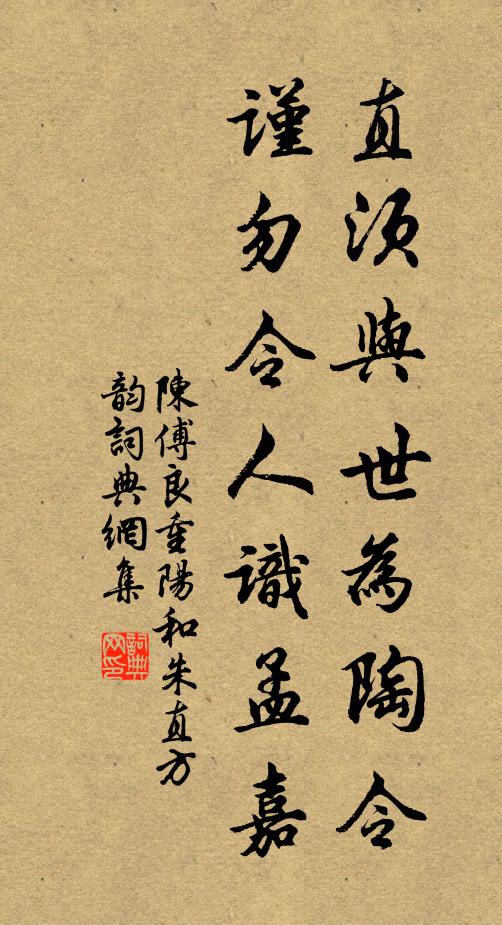 直須與世為陶令
謹勿令人識孟嘉
陳傅良重陽和朱直方
韵詞典網集
詞典
网印